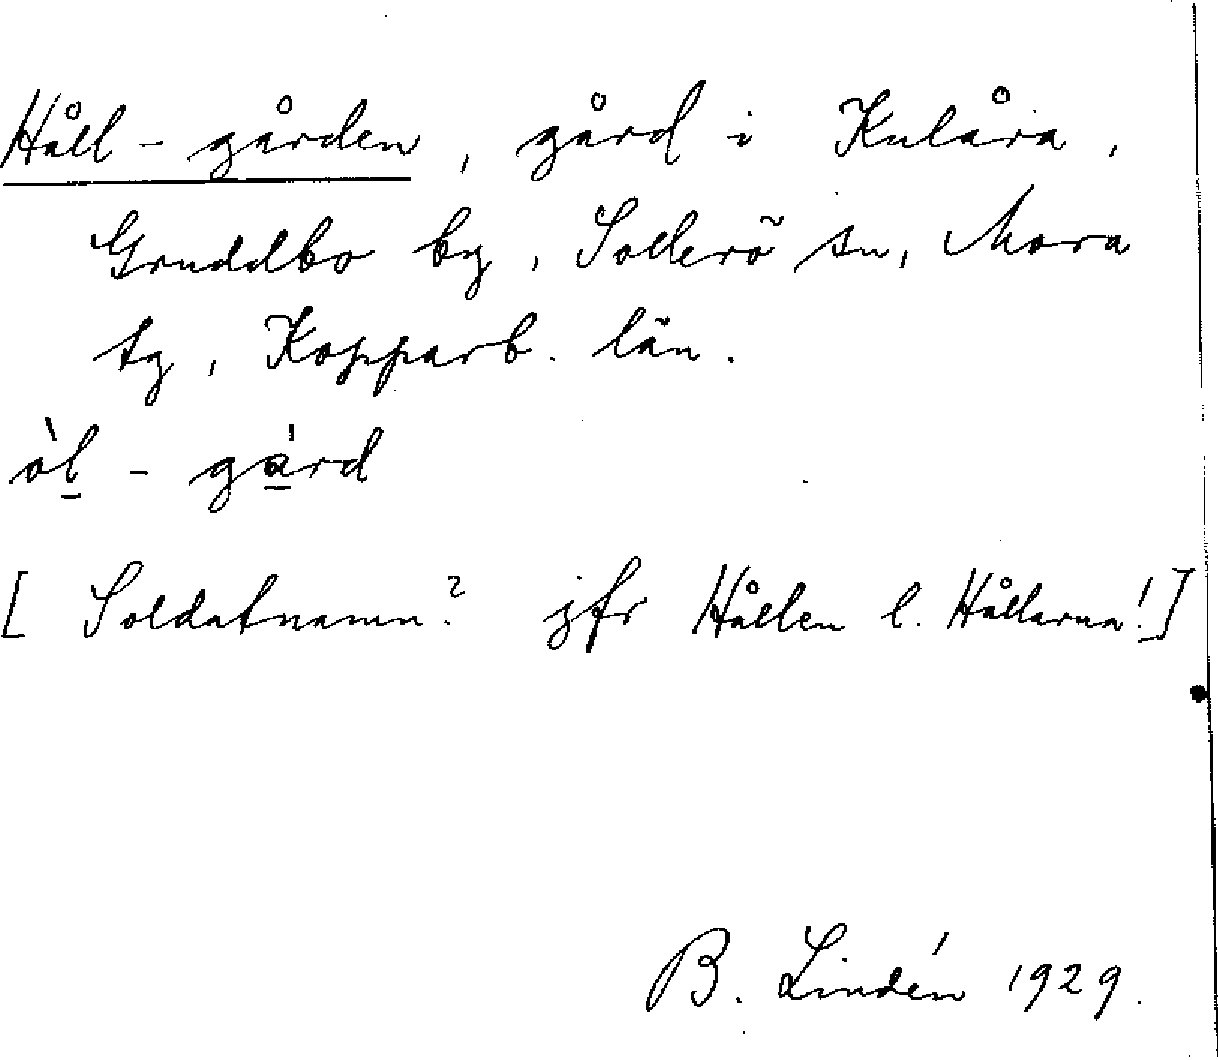 Håll-gården, gård i Kulåra,
Gruddbo by, Sollerö sn, Mora
tg, Kopparb. län.
òl̲-gá̲rd
[Soldatnamn? jfr Hållen l. Hållarna!]
B. Lindén 1929.